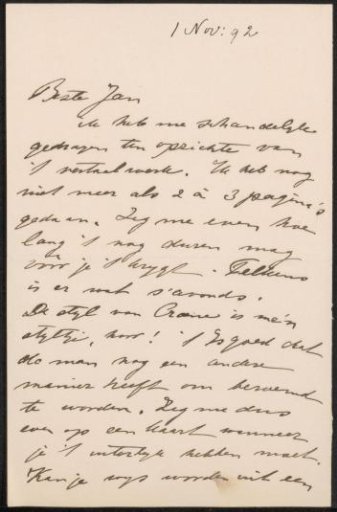 1 Nov: 92
Beste Jan
ik heb me schandelijk
gedragen ten opzichte van
't vertaalwerk. Ik heb nog
niet meer als 2 à 3 pagina's
gedaan. Zeg me even hoe
lang 't nog duren mag
vóór je 't krygt. Telkens
is er wat s'avonds.
De styl van Crane is méén
styltje, hoor! 't Is goed dat
de man nog een andere
manier heeft om beroemd
te worden. Zeg me dus
even op een kaart wanneer
je 't uiterlyk hebben moet.
Kan je wys worden uit een